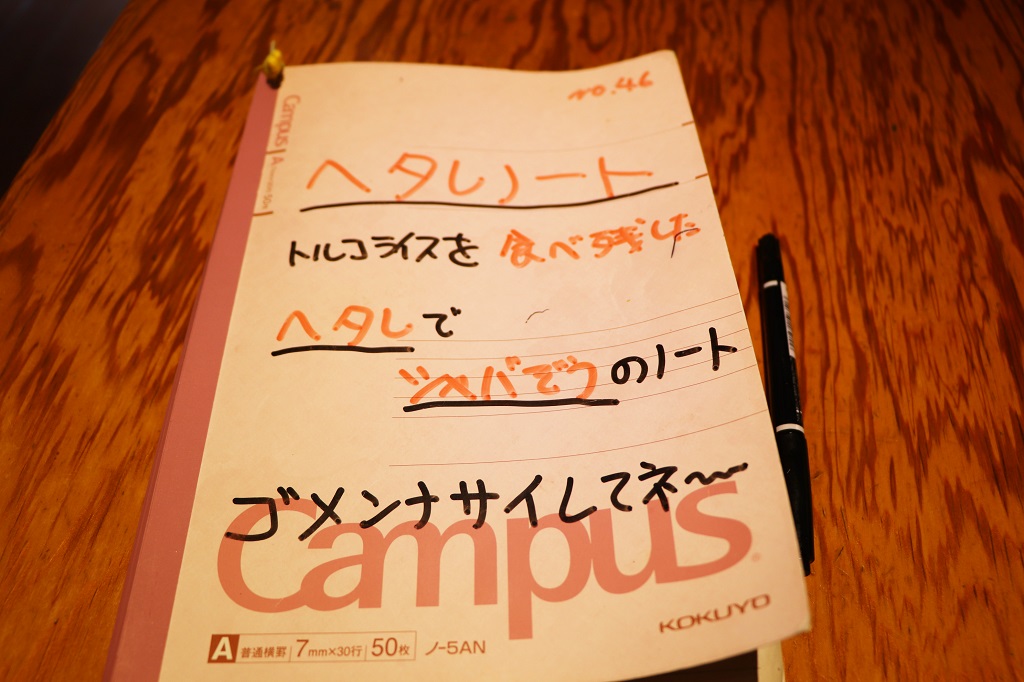 no.46
Campus A
ヘタレノート
トルコライスを食べ残した
ヘタレで
のノート
ゴメンナサイしてネ〜
Campus
KOKUYO
A 普通横罫 7mm×30行 50枚 ノ-5AN